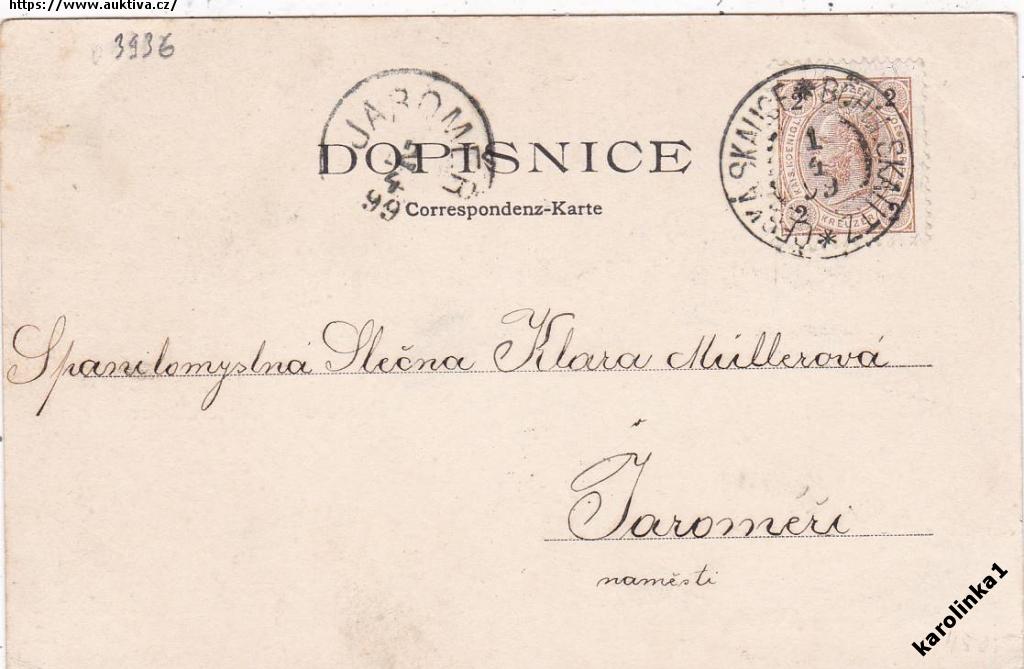 https://www.auktiva.cz/
3936
JAROMĚŘ
2
4
99
ČESKÁ SKALICE * BÖHM. SKALITZ *
1
4
99
2 2
2
KREUZER
DOPISNICE
Correspondenz-Karte
Spanilomyslná Slečna Klara Müllerová
v
Jaroměři
naměsti
karolinka1